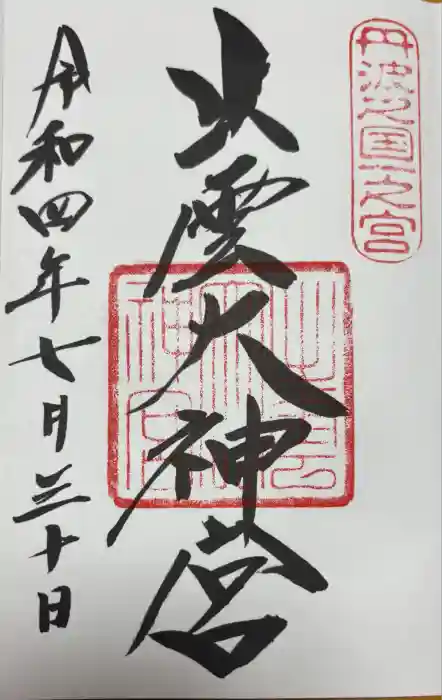 丹波之国一之宮
出雲大神宮
令和四年七月三十日